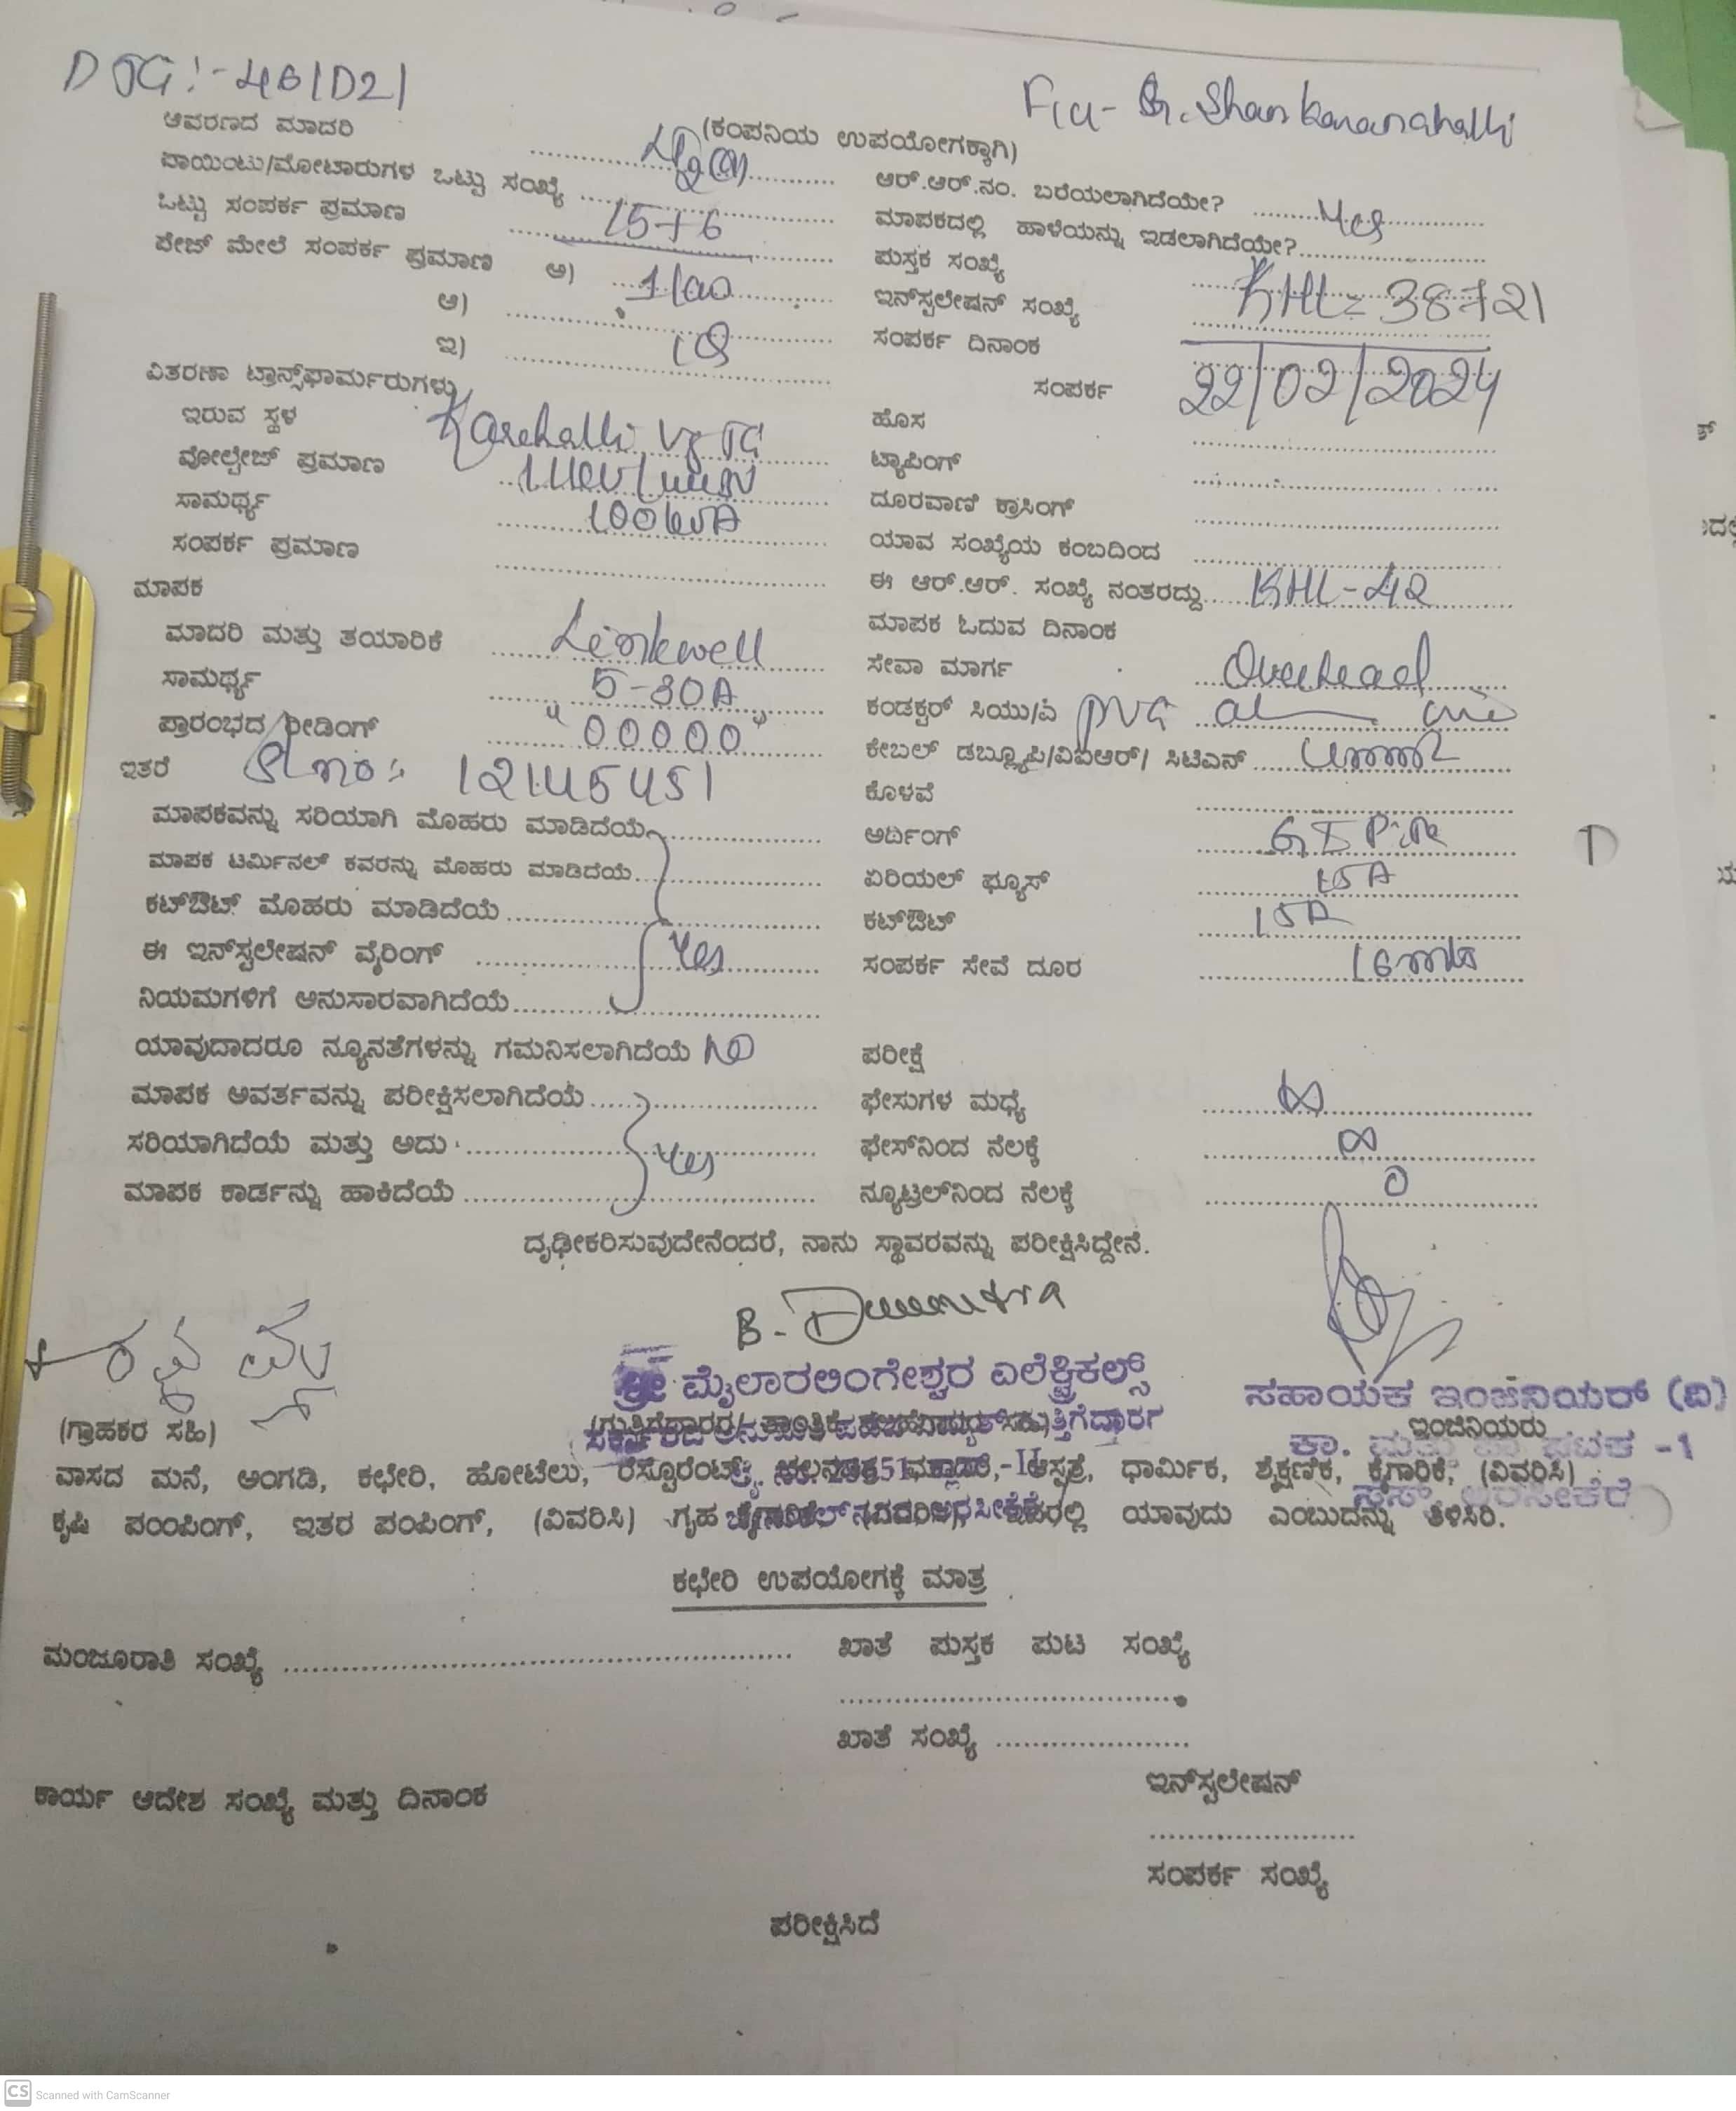 DTG:- 461D21
Fia- G. Shankaranahalli
(ಕಂಪನಿಯ ಉಪಯೋಗಕ್ಕಾಗಿ)
ಆವರಣದ ಮಾದರಿ
ಪಾಯಿಂಟು/ಮೋಟಾರುಗಳ ಒಟ್ಟು ಸಂಖ್ಯೆ ..........
ಒಟ್ಟು ಸಂಪರ್ಕ ಪ್ರಮಾಣ 15+6
ಪೇಜ್ ಮೇಲೆ ಸಂಪರ್ಕ ಪ್ರಮಾಣ ಅ)
ಆ)
ಇ)
ವಿತರಣಾ ಟ್ರಾನ್ಸ್‌ಫಾರ್ಮರುಗಳು
ಇರುವ ಸ್ಥಳ Karehalli Vg TC
ವೋಲ್ಟೇಜ್ ಪ್ರಮಾಣ
ಸಾಮರ್ಥ್ಯ 100kvA
ಸಂಪರ್ಕ ಪ್ರಮಾಣ
ಮಾಪಕ
ಮಾದರಿ ಮತ್ತು ತಯಾರಿಕೆ Linkwell
ಸಾಮರ್ಥ್ಯ 5-30A
ಪ್ರಾರಂಭದ ರೀಡಿಂಗ್ "00000"
ಇತರೆ Sl no: 12145451
ಮಾಪಕವನ್ನು ಸರಿಯಾಗಿ ಮೊಹರು ಮಾಡಿದೆಯೆ
ಮಾಪಕ ಟರ್ಮಿನಲ್ ಕವರನ್ನು ಮೊಹರು ಮಾಡಿದೆಯೆ
ಕಟ್‌ಔಟ್ ಮೊಹರು ಮಾಡಿದೆಯೆ
ಈ ಇನ್‌ಸ್ಟಲೇಷನ್ ವೈರಿಂಗ್ Yes
ನಿಯಮಗಳಿಗೆ ಅನುಸಾರವಾಗಿದೆಯೆ
ಯಾವುದಾದರೂ ನ್ಯೂನತೆಗಳನ್ನು ಗಮನಿಸಲಾಗಿದೆಯೆ NO
ಮಾಪಕ ಆವರ್ತವನ್ನು ಪರೀಕ್ಷಿಸಲಾಗಿದೆಯೆ
ಸರಿಯಾಗಿದೆಯೆ ಮತ್ತು ಅದು Yes
ಮಾಪಕ ಕಾರ್ಡನ್ನು ಹಾಕಿದೆಯೆ
ಆರ್.ಆರ್.ನಂ. ಬರೆಯಲಾಗಿದೆಯೇ? Yes
ಮಾಪಕದಲ್ಲಿ ಹಾಳೆಯನ್ನು ಇಡಲಾಗಿದೆಯೇ?
ಪುಸ್ತಕ ಸಂಖ್ಯೆ
ಇನ್‌ಸ್ಟಲೇಷನ್ ಸಂಖ್ಯೆ KHL= 38721
ಸಂಪರ್ಕ ದಿನಾಂಕ 22/02/2024
ಸಂಪರ್ಕ
ಹೊಸ
ಟ್ಯಾಪಿಂಗ್
ದೂರವಾಣಿ ಕ್ರಾಸಿಂಗ್
ಯಾವ ಸಂಖ್ಯೆಯ ಕಂಬದಿಂದ
ಈ ಆರ್.ಆರ್. ಸಂಖ್ಯೆ ನಂತರದ್ದು KHL-42
ಮಾಪಕ ಓದುವ ದಿನಾಂಕ
ಸೇವಾ ಮಾರ್ಗ Overhead
ಕಂಡಕ್ಟರ್ ಸಿಯು/ಎ PVC al
ಕೇಬಲ್ ಡಬ್ಲ್ಯೂಪಿ/ವಿಐಆರ್/ ಸಿಟಿಎನ್
ಕೊಳವೆ
ಅರ್ಥಿಂಗ್ GI Pipe
ಏರಿಯಲ್ ಫ್ಯೂಸ್ 15A
ಕಟ್‌ಔಟ್ 15A
ಸಂಪರ್ಕ ಸೇವೆ ದೂರ 16mts
ಪರೀಕ್ಷೆ
ಫೇಸುಗಳ ಮಧ್ಯೆ ∞
ಫೇಸ್‌ನಿಂದ ನೆಲಕ್ಕೆ ∞
ನ್ಯೂಟ್ರಲ್‌ನಿಂದ ನೆಲಕ್ಕೆ 0
ದೃಢೀಕರಿಸುವುದೇನೆಂದರೆ, ನಾನು ಸ್ಥಾವರವನ್ನು ಪರೀಕ್ಷಿಸಿದ್ದೇನೆ.
ಶ್ರೀ ಮೈಲಾರಲಿಂಗೇಶ್ವರ ಎಲೆಕ್ಟ್ರಿಕಲ್ಸ್
ಸಹಾಯಕ ಇಂಜಿನಿಯರ್ (ವಿ)
(ಗ್ರಾಹಕರ ಸಹಿ)
ಇಂಜಿನಿಯರು
ವಾಸದ ಮನೆ, ಅಂಗಡಿ, ಕಛೇರಿ, ಹೋಟೆಲು, ರೆಸ್ಟೊರೆಂಟ್, ಆಸ್ಪತ್ರೆ, ಧಾರ್ಮಿಕ, ಶೈಕ್ಷಣಿಕ, ಕೈಗಾರಿಕೆ, (ವಿವರಿಸಿ)
ಕೃಷಿ ಪಂಂಪಿಂಗ್, ಇತರ ಪಂಪಿಂಗ್, (ವಿವರಿಸಿ) ಗೃಹ ಯಾವುದು ಎಂಬುದನ್ನು ತಿಳಿಸಿರಿ.
ಕಛೇರಿ ಉಪಯೋಗಕ್ಕೆ ಮಾತ್ರ
ಮಂಜೂರಾತಿ ಸಂಖ್ಯೆ ..........
ಖಾತೆ ಪುಸ್ತಕ ಪುಟ ಸಂಖ್ಯೆ
ಖಾತೆ ಸಂಖ್ಯೆ ..........
ಕಾರ್ಯ ಆದೇಶ ಸಂಖ್ಯೆ ಮತ್ತು ದಿನಾಂಕ
ಇನ್‌ಸ್ಟಲೇಷನ್
ಸಂಪರ್ಕ ಸಂಖ್ಯೆ
ಪರೀಕ್ಷಿಸಿದೆ
CS Scanned with CamScanner